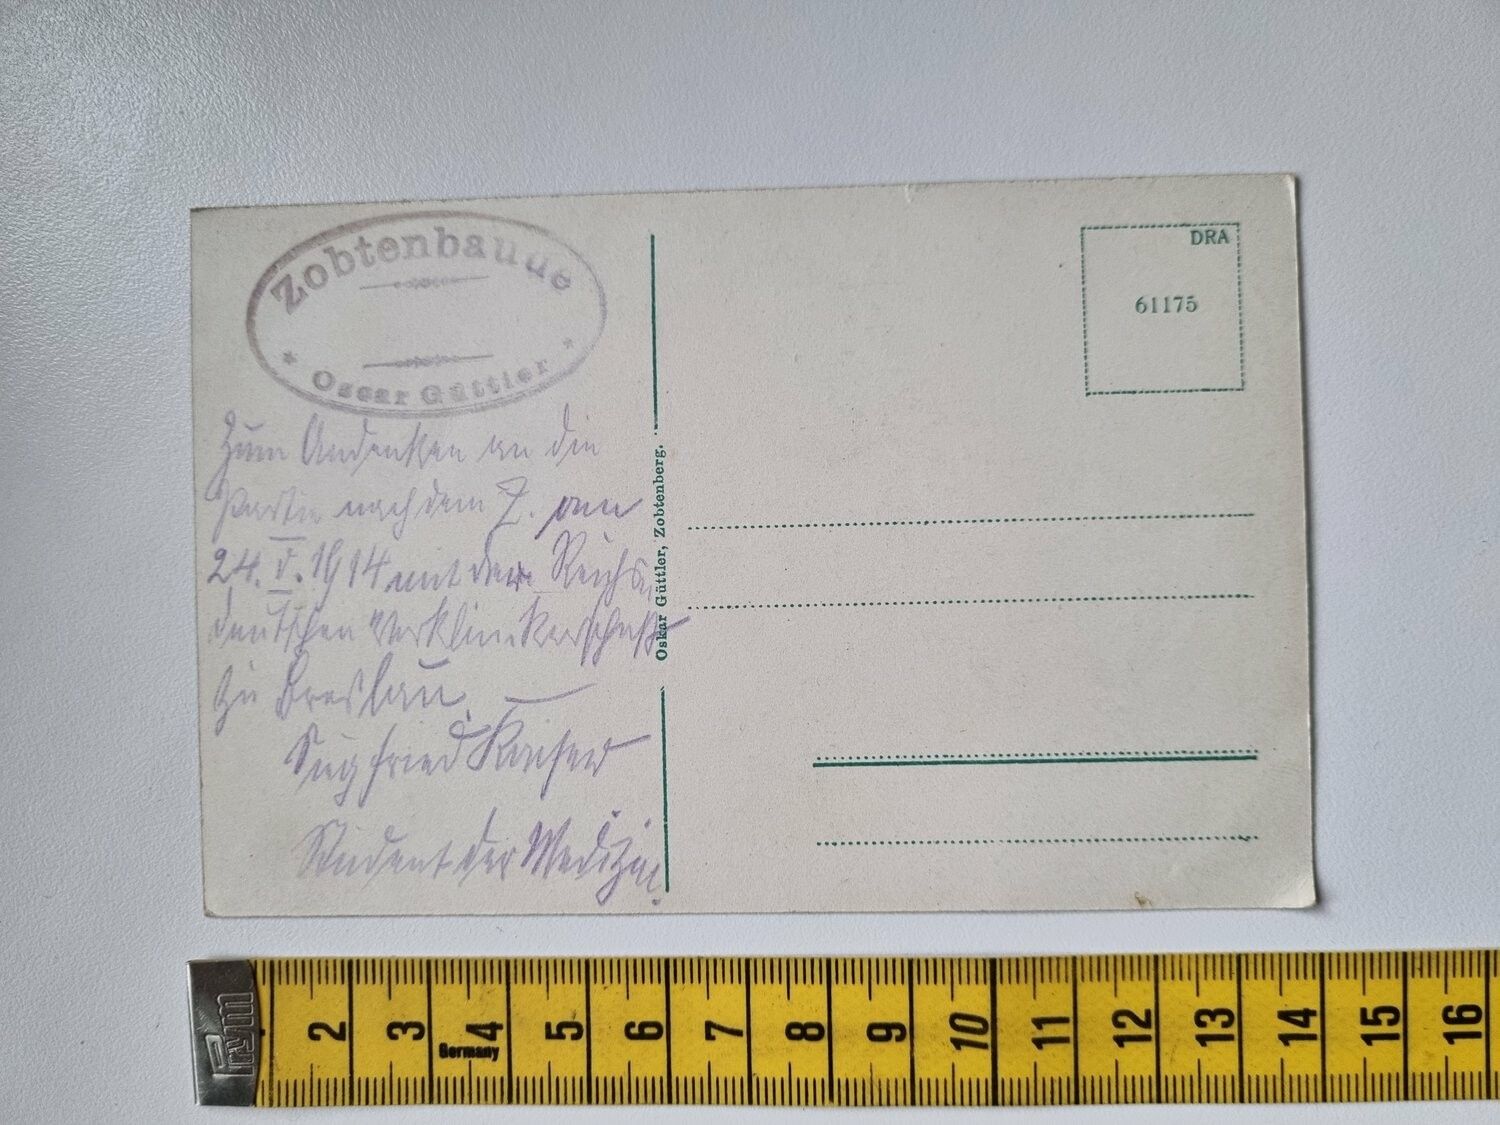 Zobtenbaude
* Oscar Güttler *
Zum Andenken an die
Partie nach dem Z. am
24. V. 1914 mit der Reichs-
deutschen
zu Breslau.
Siegfried Kaiser
Student der Medizin.
Oskar Güttler, Zobtenberg.
DRA
61175
Prym
2 3 4 5 6 7 8 9 10 11 12 13 14 15 16
Germany